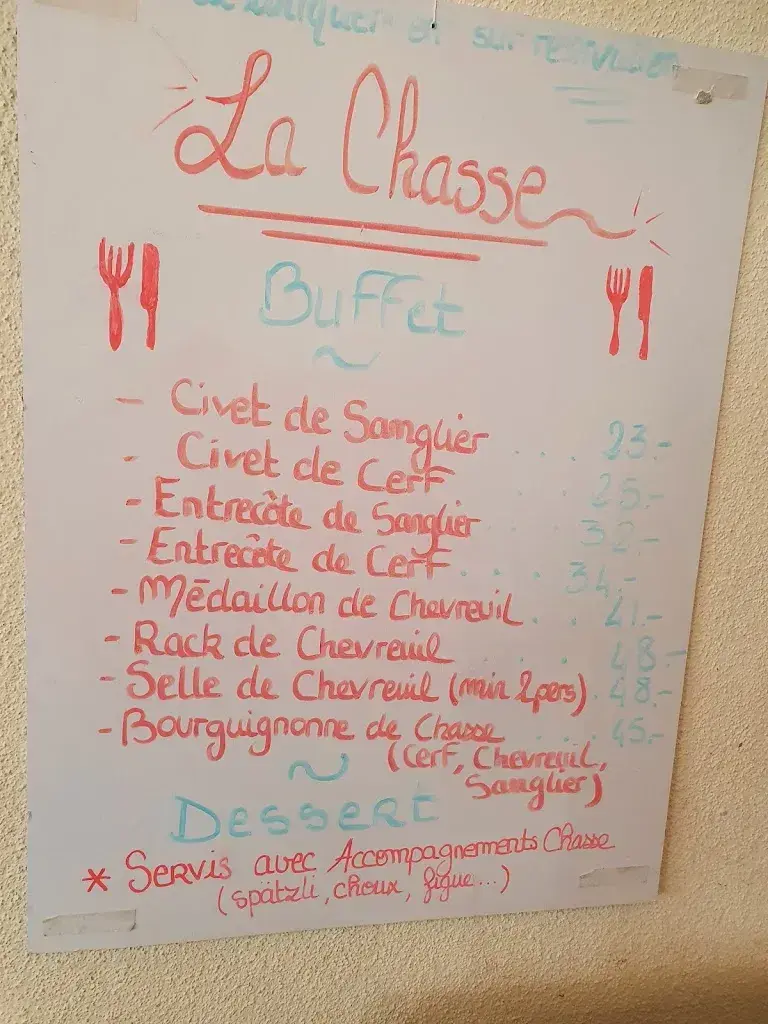 et sur réservation
La Chasse
Buffet
- Civet de Sanglier ... 23.-
- Civet de Cerf .. 25.-
- Entrecôte de Sanglier .. 32.-
- Entrecôte de Cerf .... 34.-
- Médaillon de Chevreuil .. 41.-
- Rack de Chevreuil ... 48.-
- Selle de Chevreuil (min 2 pers) . 48.-
- Bourguignonne de Chasse ... 45.-
(Cerf, Chevreuil,
Sanglier)
Dessert
* Servis avec Accompagnements Chasse
(spätzli, choux, figue...)